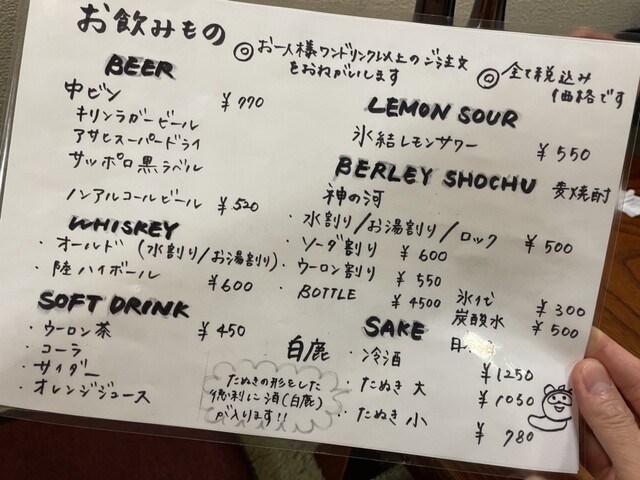 お飲みもの
◎お一人様ワンドリンク以上のご注文
をおねがいします
◎全て税込み
価格です
BEER
中ビン ¥770
キリンラガービール
アサヒスーパードライ
サッポロ黒ラベル
ノンアルコールビール ¥520
WHISKEY
・オールド(水割り/お湯割り)
・陸ハイボール ¥600
SOFT DRINK
・ウーロン茶 ¥450
・コーラ
・サイダー
・オレンジジュース
LEMON SOUR
氷結レモンサワー ¥550
BERLEY SHOCHU 麦焼酎
神の河
・水割り/お湯割り/ロック ¥500
・ソーダ割り ¥600
・ウーロン割り ¥550
・BOTTLE ¥4500
氷代 ¥300
炭酸水 ¥500
SAKE
白鹿
・冷酒 ¥1250
・たぬき 大 ¥1050
・たぬき 小 ¥780
たぬきの形をした
徳利に酒(白鹿)
が入ります!!